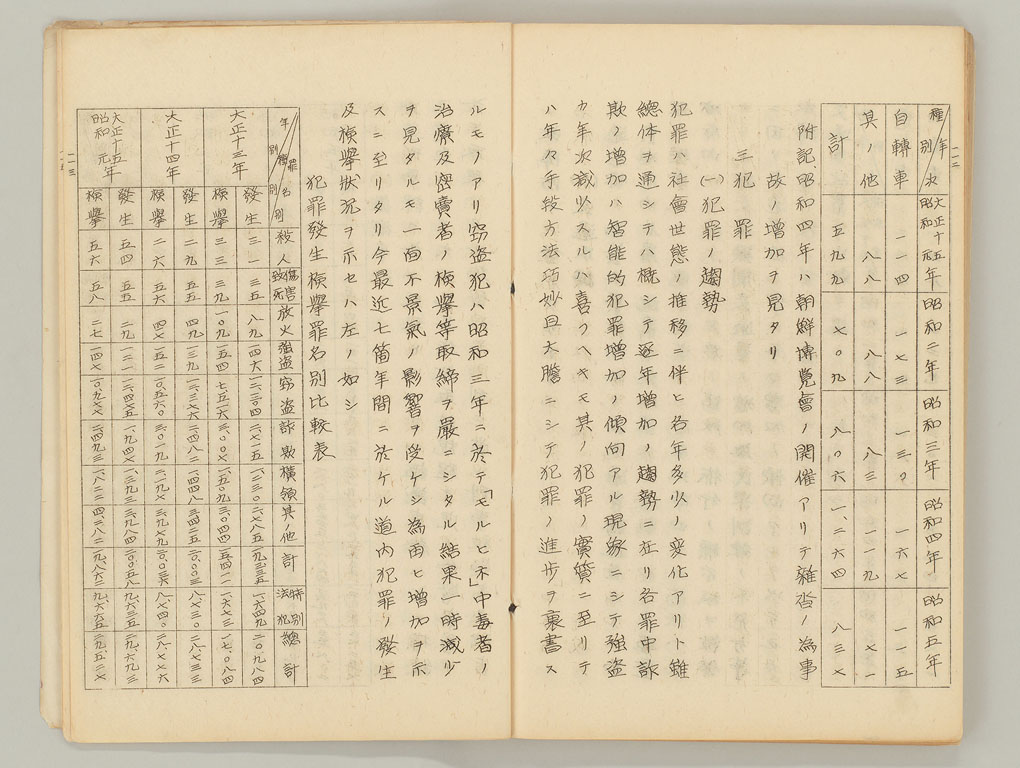 一一二
種別 年次 大正十五年 昭和元年 昭和二年 昭和三年 昭和四年 昭和五年
自轉車 一一四 一七三 一三〇 一六七 一一五
其ノ他 八八 八八 八三 一一九 七一
計 五九九 七〇九 八〇六 一、二六四 八三七
附記昭和四年ハ朝鮮博覽會ノ開催アリテ雜沓ノ為事
故ノ增加ヲ見タリ
三 犯罪
(一) 犯罪ノ趨勢
犯罪ハ社會世態ノ推移ニ伴ヒ各年多少ノ變化アリト雖
總体ヲ通シテハ概シテ逐年增加ノ趨勢ニ在リ各罪中詐
欺ノ增加ハ智能的犯罪增加ノ傾向アル現象ニシテ強盜
カ年次減少スルハ喜フヘキモ其ノ犯罪ノ實質ニ至リテ
ハ年々手段方法巧妙且大膽ニシテ犯罪ノ進步ヲ裏書ス
ルモノアリ窃盜犯ハ昭和三年ニ於テ「モルヒネ」中毒者ノ
治療及密賣者ノ檢擧等取締ヲ嚴ニシタル結果一時減少
ヲ見タルモ一面不景氣ノ影響ヲ受ケシ為由ヒ增加ヲ示
スニ至リタリ今最近七箇年間ニ於ケル道內犯罪ノ發生
及檢擧狀況ヲ示セハ左ノ如シ
犯罪發生檢擧罪名別比較表
年別 種別 罪名別 殺人 傷害致死 放火 強盜 窃盜 詐欺 橫領 其ノ他 計 特別法犯 總計
大正十三年 發生 三一 三五 八九 一四六 一二、二〇四 二、七一五 一、二三〇 二、七八五 一九、三三五 一、六四九 二〇、九八四
檢擧 三三 三九 一〇九 一五四 七、五二六 三、〇〇七 一、五〇九 三、〇四四 一五、四一一 一、六七三 一七、〇八四
大正十四年 發生 二九 五五 四九 一三九 一三、三七六 二、四八一 一、四四八 三、四二五 二〇、〇〇三 八、七三〇 二八、七三三
檢擧 二六 五六 四七 一五二 一〇、五六〇 三、〇一九 二、二九七 三、九七九 二〇、〇三六 八、七四〇 二八、七七六
大正十五年 昭和元年 發生 五四 五五 二九 一二一 一二、四七五 一、九七四 一、三九三 三、九八四 二〇、〇五八 九、六三五 二九、六九三
檢擧 五六 五八 二七 一四七 一〇、九七七 二、四九三 一、八二二 四、三八二 一九、八六二 九、六六五 二九、五二七
一一三